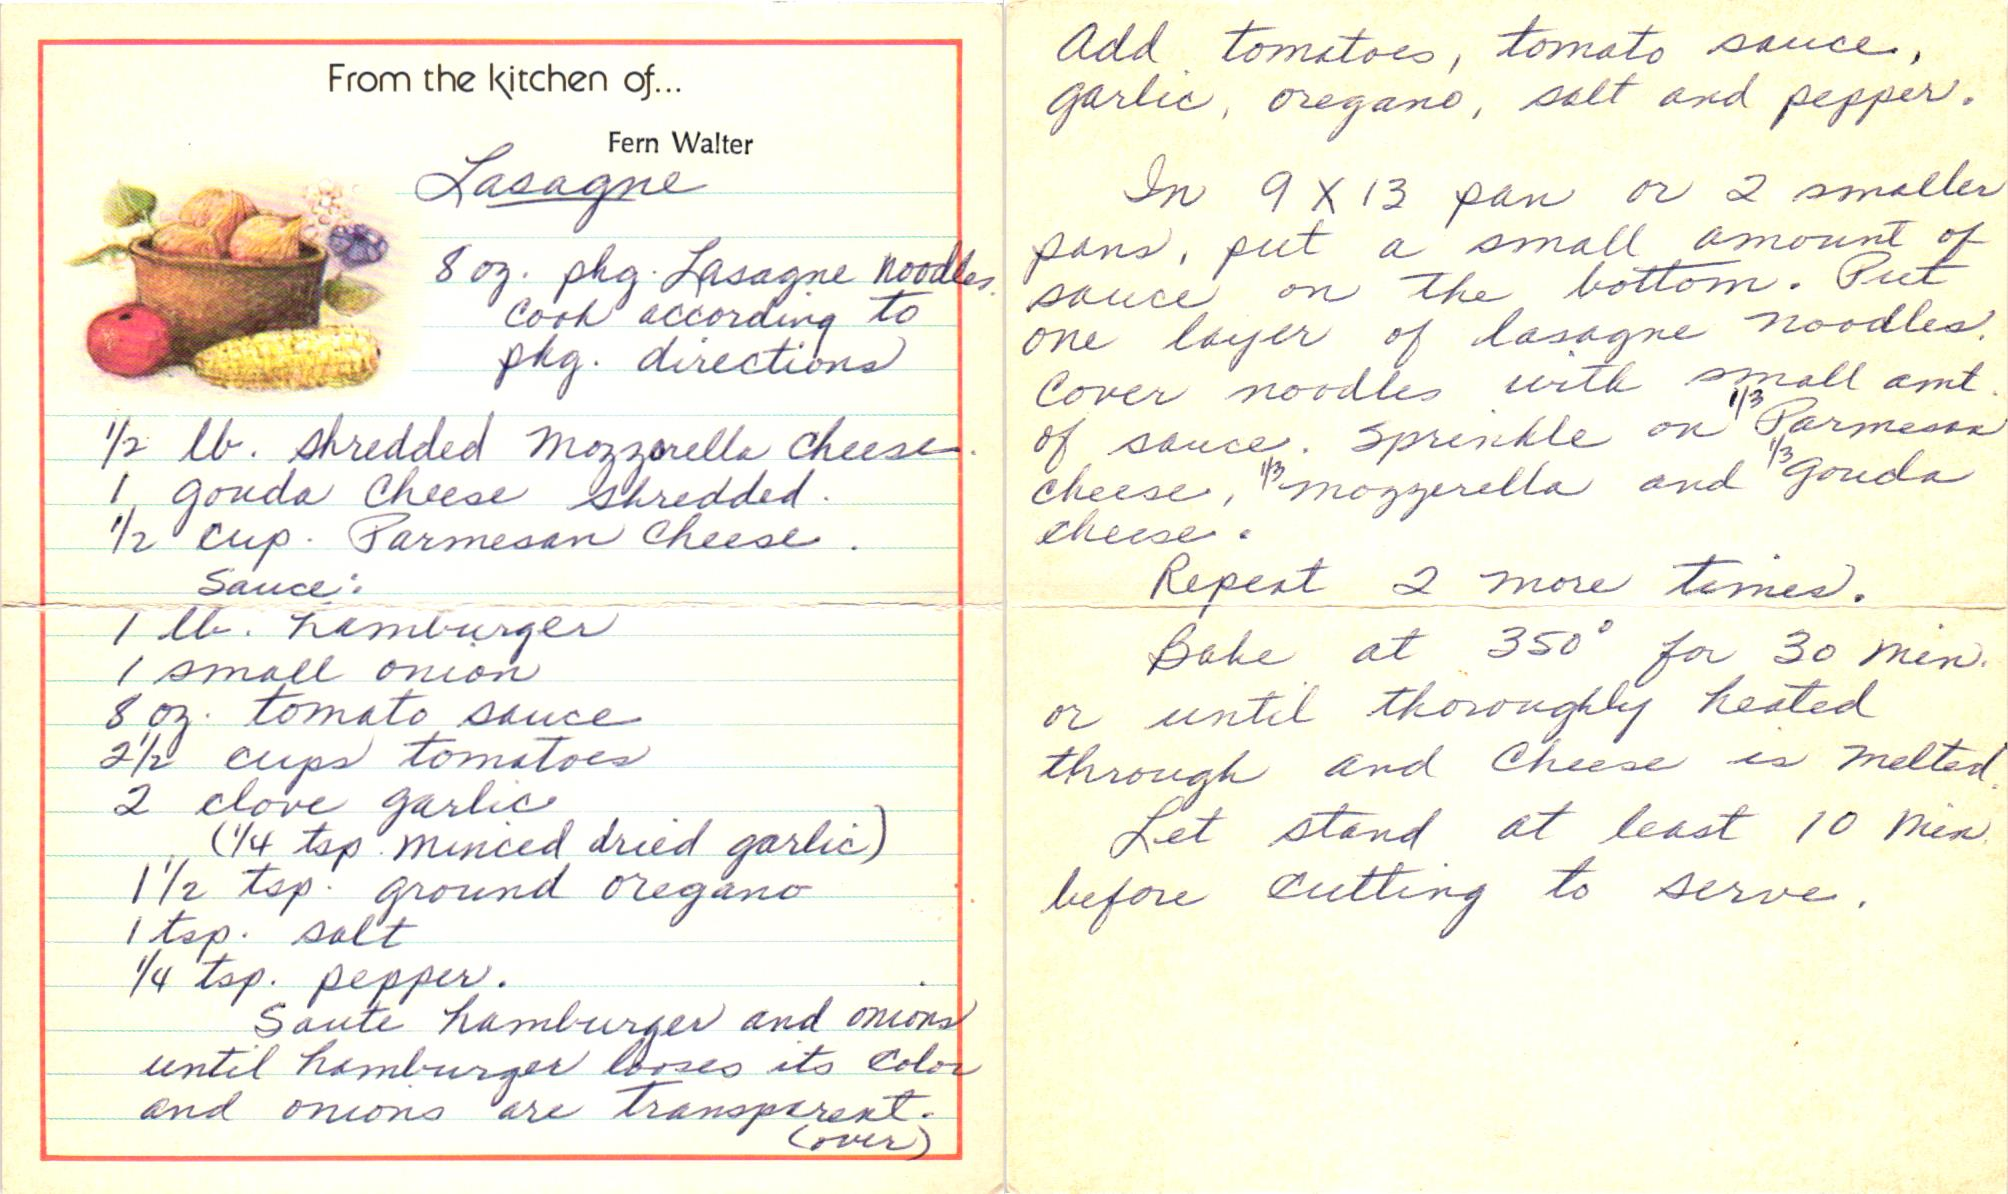 From the kitchen of...
Fern Walter
Lasagne
8 oz. pkg. Lasagne noodles.
Cook according to
pkg. directions
1/2 lb. shredded Mozzorella Cheese.
1 gouda Cheese shredded.
1/2 cup. Parmesan Cheese.
Sauce:
1 lb. hamburger
1 small onion
8 oz. tomato sauce
2 1/2 cups tomatoes
2 clove garlic
(1/4 tsp. minced dried garlic)
1 1/2 tsp. ground oregano
1 tsp. salt
1/4 tsp. pepper.
Saute hamburger and onions
until hamburger looses its color
and onions are transparent.
(over)
Add tomatoes, tomato sauce,
garlic, oregano, salt and pepper.
In 9 X 13 pan or 2 smaller
pans, put a small amount of
sauce on the bottom. Put
one layer of lasagne noodles.
Cover noodles with small amt.
of sauce. Sprinkle on 1/3 Parmesan
cheese, 1/3 mozzerella and 1/3 gouda
cheese.
Repeat 2 more times.
Bake at 350° for 30 min.
or until thoroughly heated
through and Cheese is melted.
Let stand at least 10 min.
before cutting to serve.